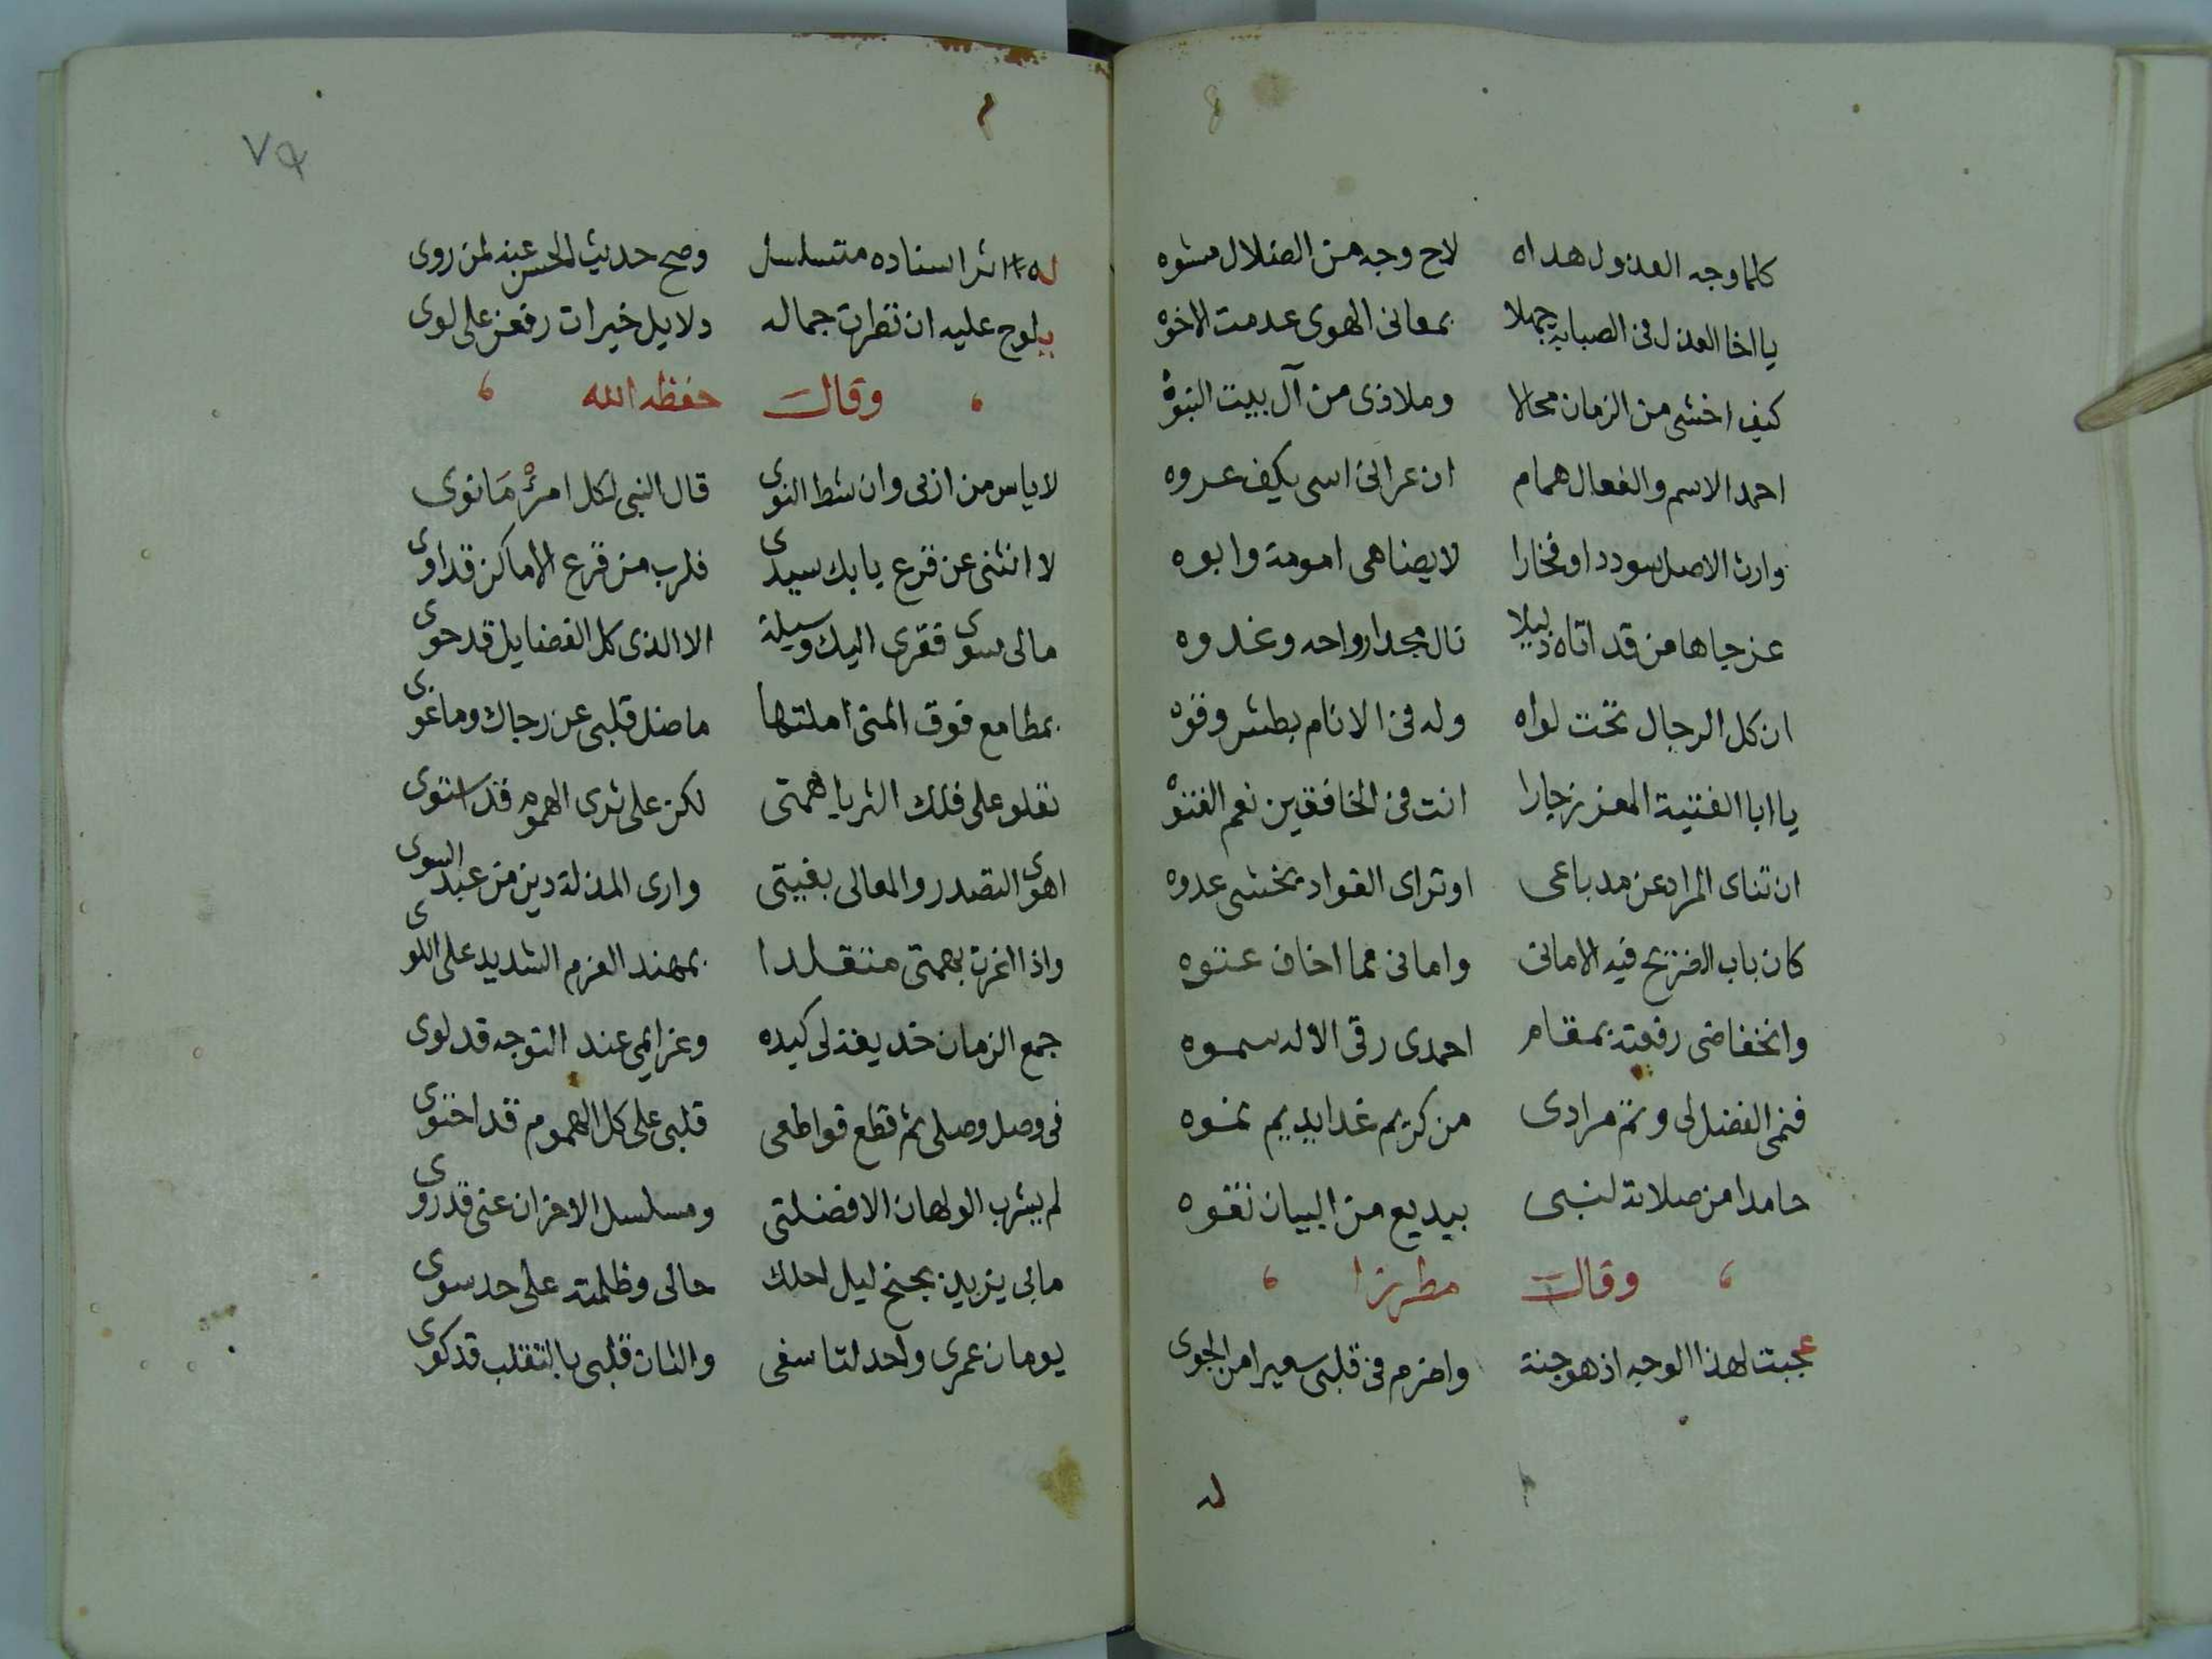 كلما وجه العذول هداه لاح وجه من الضلال مشوه
يا اخا العذل فى الصبابة جهلا بمعانى الهوى عدمت الاخوه
كيف اخشى من الزمان محالا وملاذى من آل بيت النبوة
احمد الاسم والفعال همام ان عرانى اسى بكيف عروه
وارث الاصل سوددا وفخارا لا يضاهى امومة وابوه
عز جاها من قد اتاه ذليلا نال مجدا رواحه وغدوه
ان كل الرجال تحت لواه وله فى الانام بطش وقوه
يا ابا الفتية المعزز جارا انت فى الخافقين نعم الفتوة
ان تناى المراد عن مد باعى او تراى الفواد يخشى عدوه
كان باب الضريح فيه الامانى وامانى مما اخاف عتوه
وانخفاضى رفعته بمقام احمدى رقى الاله سموه
فنمى الفضل لى وتم مرادى من كريم غدا يديم نموه
حامدا من صلاته لنبى ببديع من البيان تفوه
وقال مطرزا
عجبت لهذا الوجه اذ هو جنة واضرم فى قلبى سعيرا من الجوى
له
٧٩
له اثر اسناده متسلسل وصح حديث الحسن عنه لمن روى
يلوح عليه ان نظرت جماله دلايل خيرات رفعن على لوى
وقال حفظه الله
لا ياس من ازنى وان شط النوى قال النبى لكل امرئ مانوى
لا انثنى عن قرع بابك سيدى فلرب من قرع الاماكن قد اوى
مالى سوى فقرى اليك وسيلة الا الذى كل الفضايل قد حوى
بمطامع فوق المنى املتها ما ضل قلبى عن رجاك وما غوى
تعلو على فلك الثريا همتى لكن على ثرى الهموم قد استوى
اهوى التصدر والمعالى بغيتى وارى المذلة دين من عبد السوى
واذا انفرت بهمتى متقلدا بمهند العزم الشديد على اللوى
جمع الزمان خديعة لى كيده وعزايمى عند التوجه قد لوى
فى وصل وصلى ثم قطع قواطعى قلبى على كل الهموم قد احتوى
لم يشرب الولهان الا فضلتى ومسلسل الاحزان عنى قد روى
مابى يزيد بجنح ليل احلك حالى وظلمته على حد سوى
يومان عمرى واحد لتاسفى والثان قلبى بالتقلب قد كوى